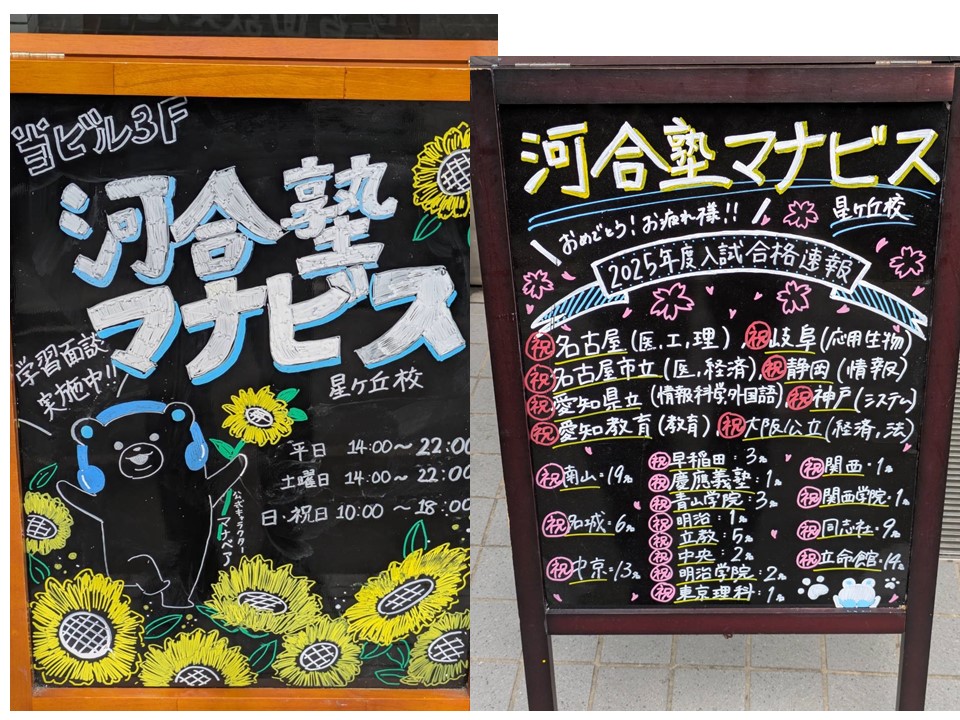 当ビル3F
河合塾
マナビス
学習面談
実施中!!
星ヶ丘校
平日 14:00〜22:00
土曜日 14:00〜22:00
日・祝日 10:00〜18:00
公式キャラクター
マナベア
河合塾マナビス
星ヶ丘校
おめでとう!お疲れ様!!
2025年度入試合格速報
祝名古屋(医,工,理) 祝岐阜(応用生物)
祝名古屋市立(医,経済) 祝静岡(情報)
祝愛知県立(情報科学,外国語) 祝神戸(システム)
祝愛知教育(教育) 祝大阪公立(経済,法)
祝南山=19名
祝名城=6名
祝中京=13名
祝早稲田:3名
祝慶應義塾:1名
祝青山学院:3名
祝明治:1名
祝立教:5名
祝中央:2名
祝明治学院:2名
祝東京理科:1名
祝関西:1名
祝関西学院:1名
祝同志社:9名
祝立命館:14名